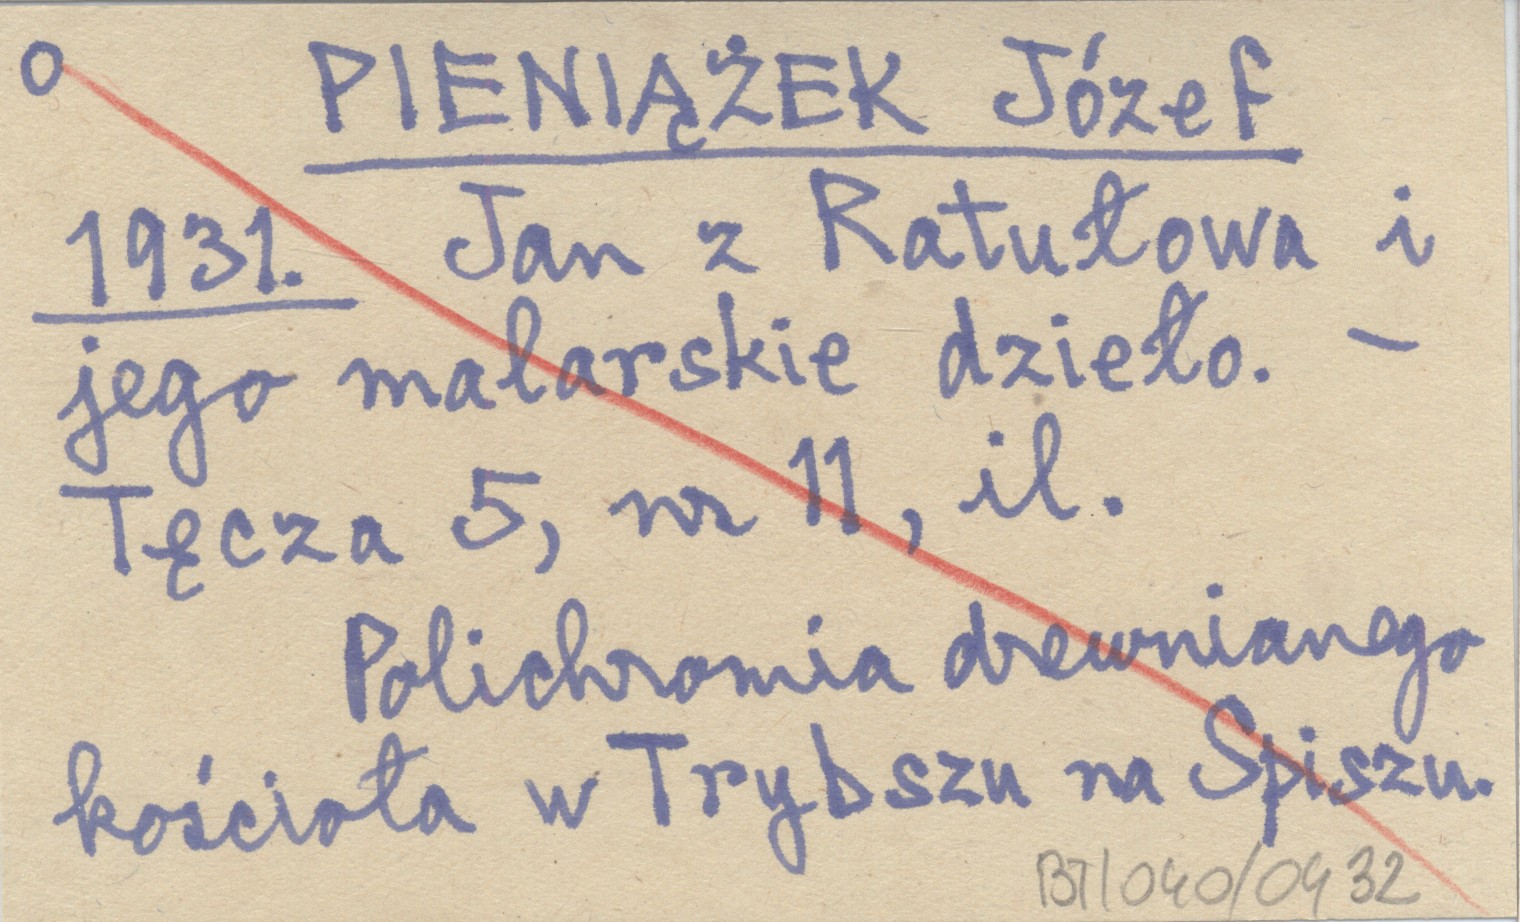 o PIENIĄŻEK Józef
1931. Jan z Ratułowa i
jego malarskie dzieło. –
Tęcza 5, nr 11, il.
Polichromia drewnianego
kościoła w Trybszu na Spiszu.
BT/040/04 32